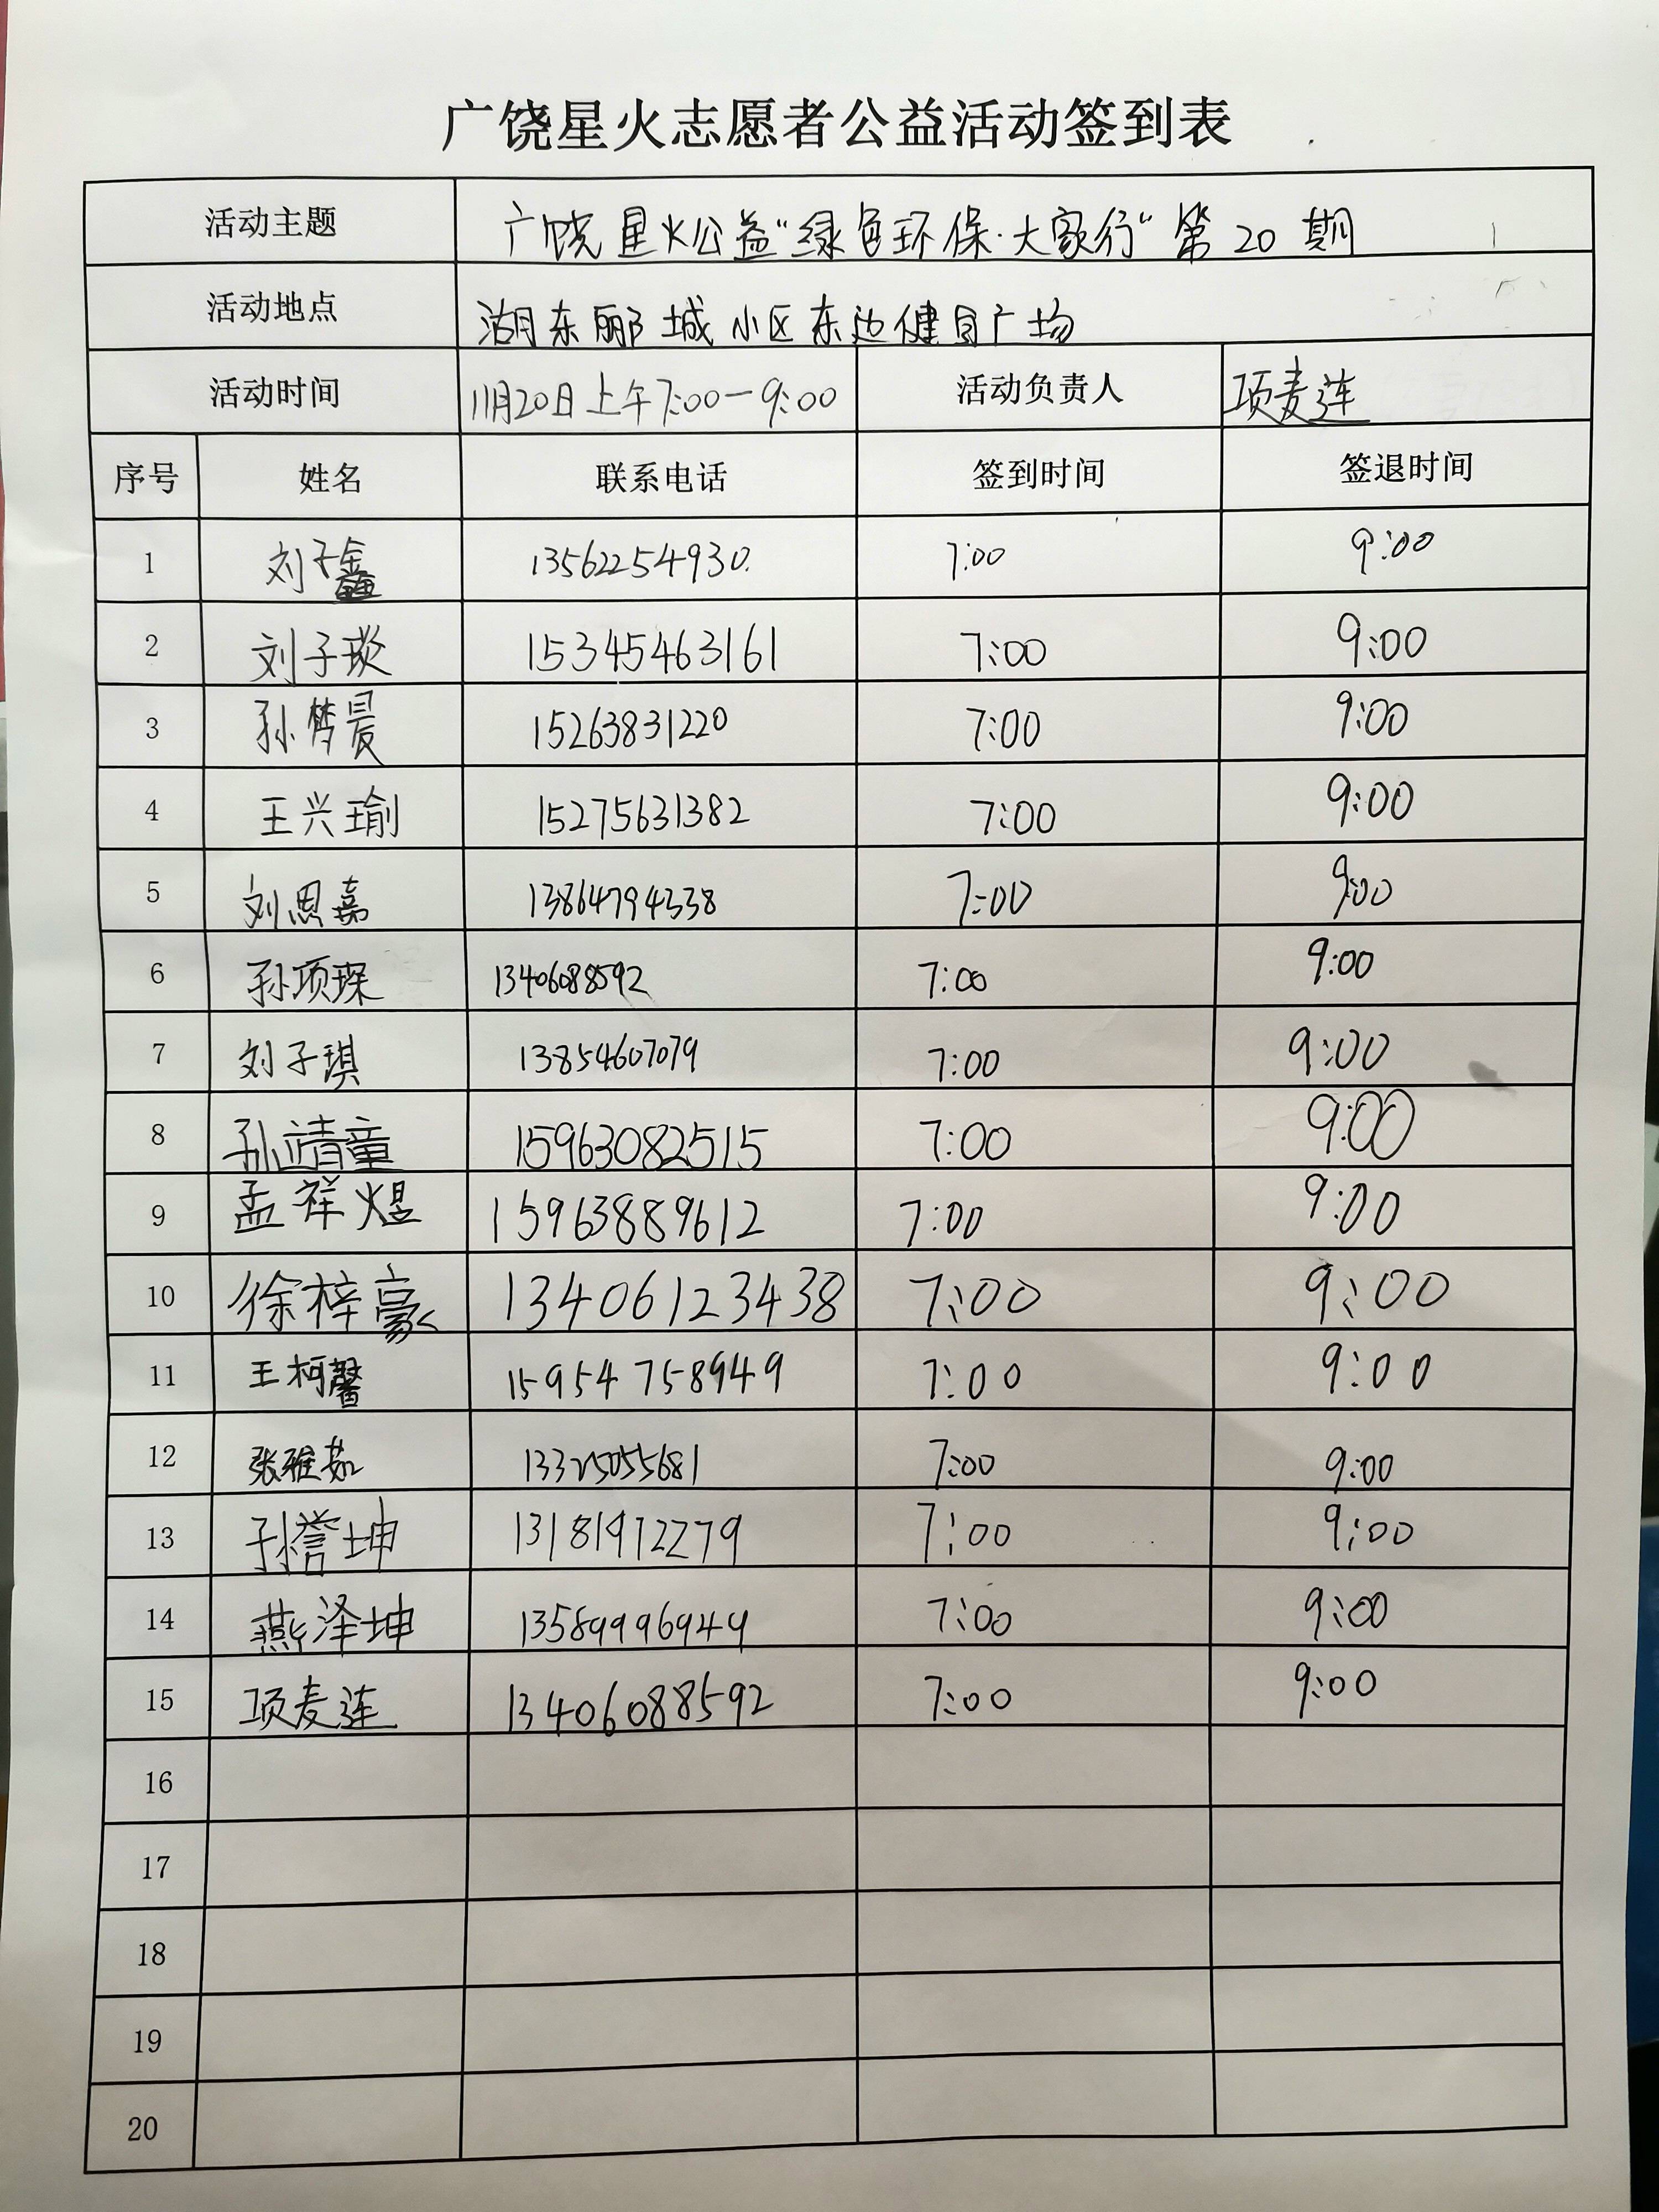 广饶星火志愿者公益活动签到表
活动主题 广饶星火公益"绿色环保·大家行"第20期
活动地点 湖东郦城小区东边健身广场
活动时间 11月20日上午7:00—9:00 活动负责人 项麦连
序号 姓名 联系电话 签到时间 签退时间
1 刘子鑫 13562254930. 7:00 9:00
2 刘子琰 15345463161 7:00 9:00
3 孙梦晨 15263831220 7:00 9:00
4 王兴瑜 15275631382 7:00 9:00
5 刘恩嘉 13864794338 7:00 9:00
6 孙项琛 13406088592 7:00 9:00
7 刘子琪 13854607079 7:00 9:00
8 孙靖童 15963082515 7:00 9:00
9 孟祥煜 15963889612 7:00 9:00
10 徐梓豪 13406123438 7:00 9:00
11 王柯馨 15954758949 7:00 9:00
12 张雅茹 13325055681 7:00 9:00
13 孙誉坤 13181972279 7:00 9:00
14 燕泽坤 13589996949 7:00 9:00
15 项麦连 13406088592 7:00 9:00
16
17
18
19
20